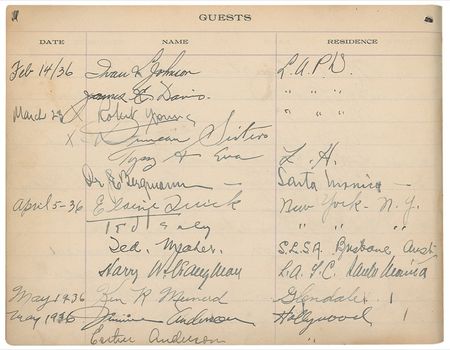 GUESTS
DATE NAME RESIDENCE
Feb 14/36 Ivan L Johnson L.A.P.D.
James E Davis. " " "
March 28 X Robert Young " " "
X Duncan Sisters
Topsy & Eva L. A.
Dr E Bergmann — Santa Monica —
April 5-36 Elaine Quick New York - N.Y.
" " "
Ted. S.L.S.A. Brisbane Aust
Harry L.A. Santa Monica
May 1936 R Glendale. 1
May 1936 Anderson Hollywood 1
Esther Anderson "